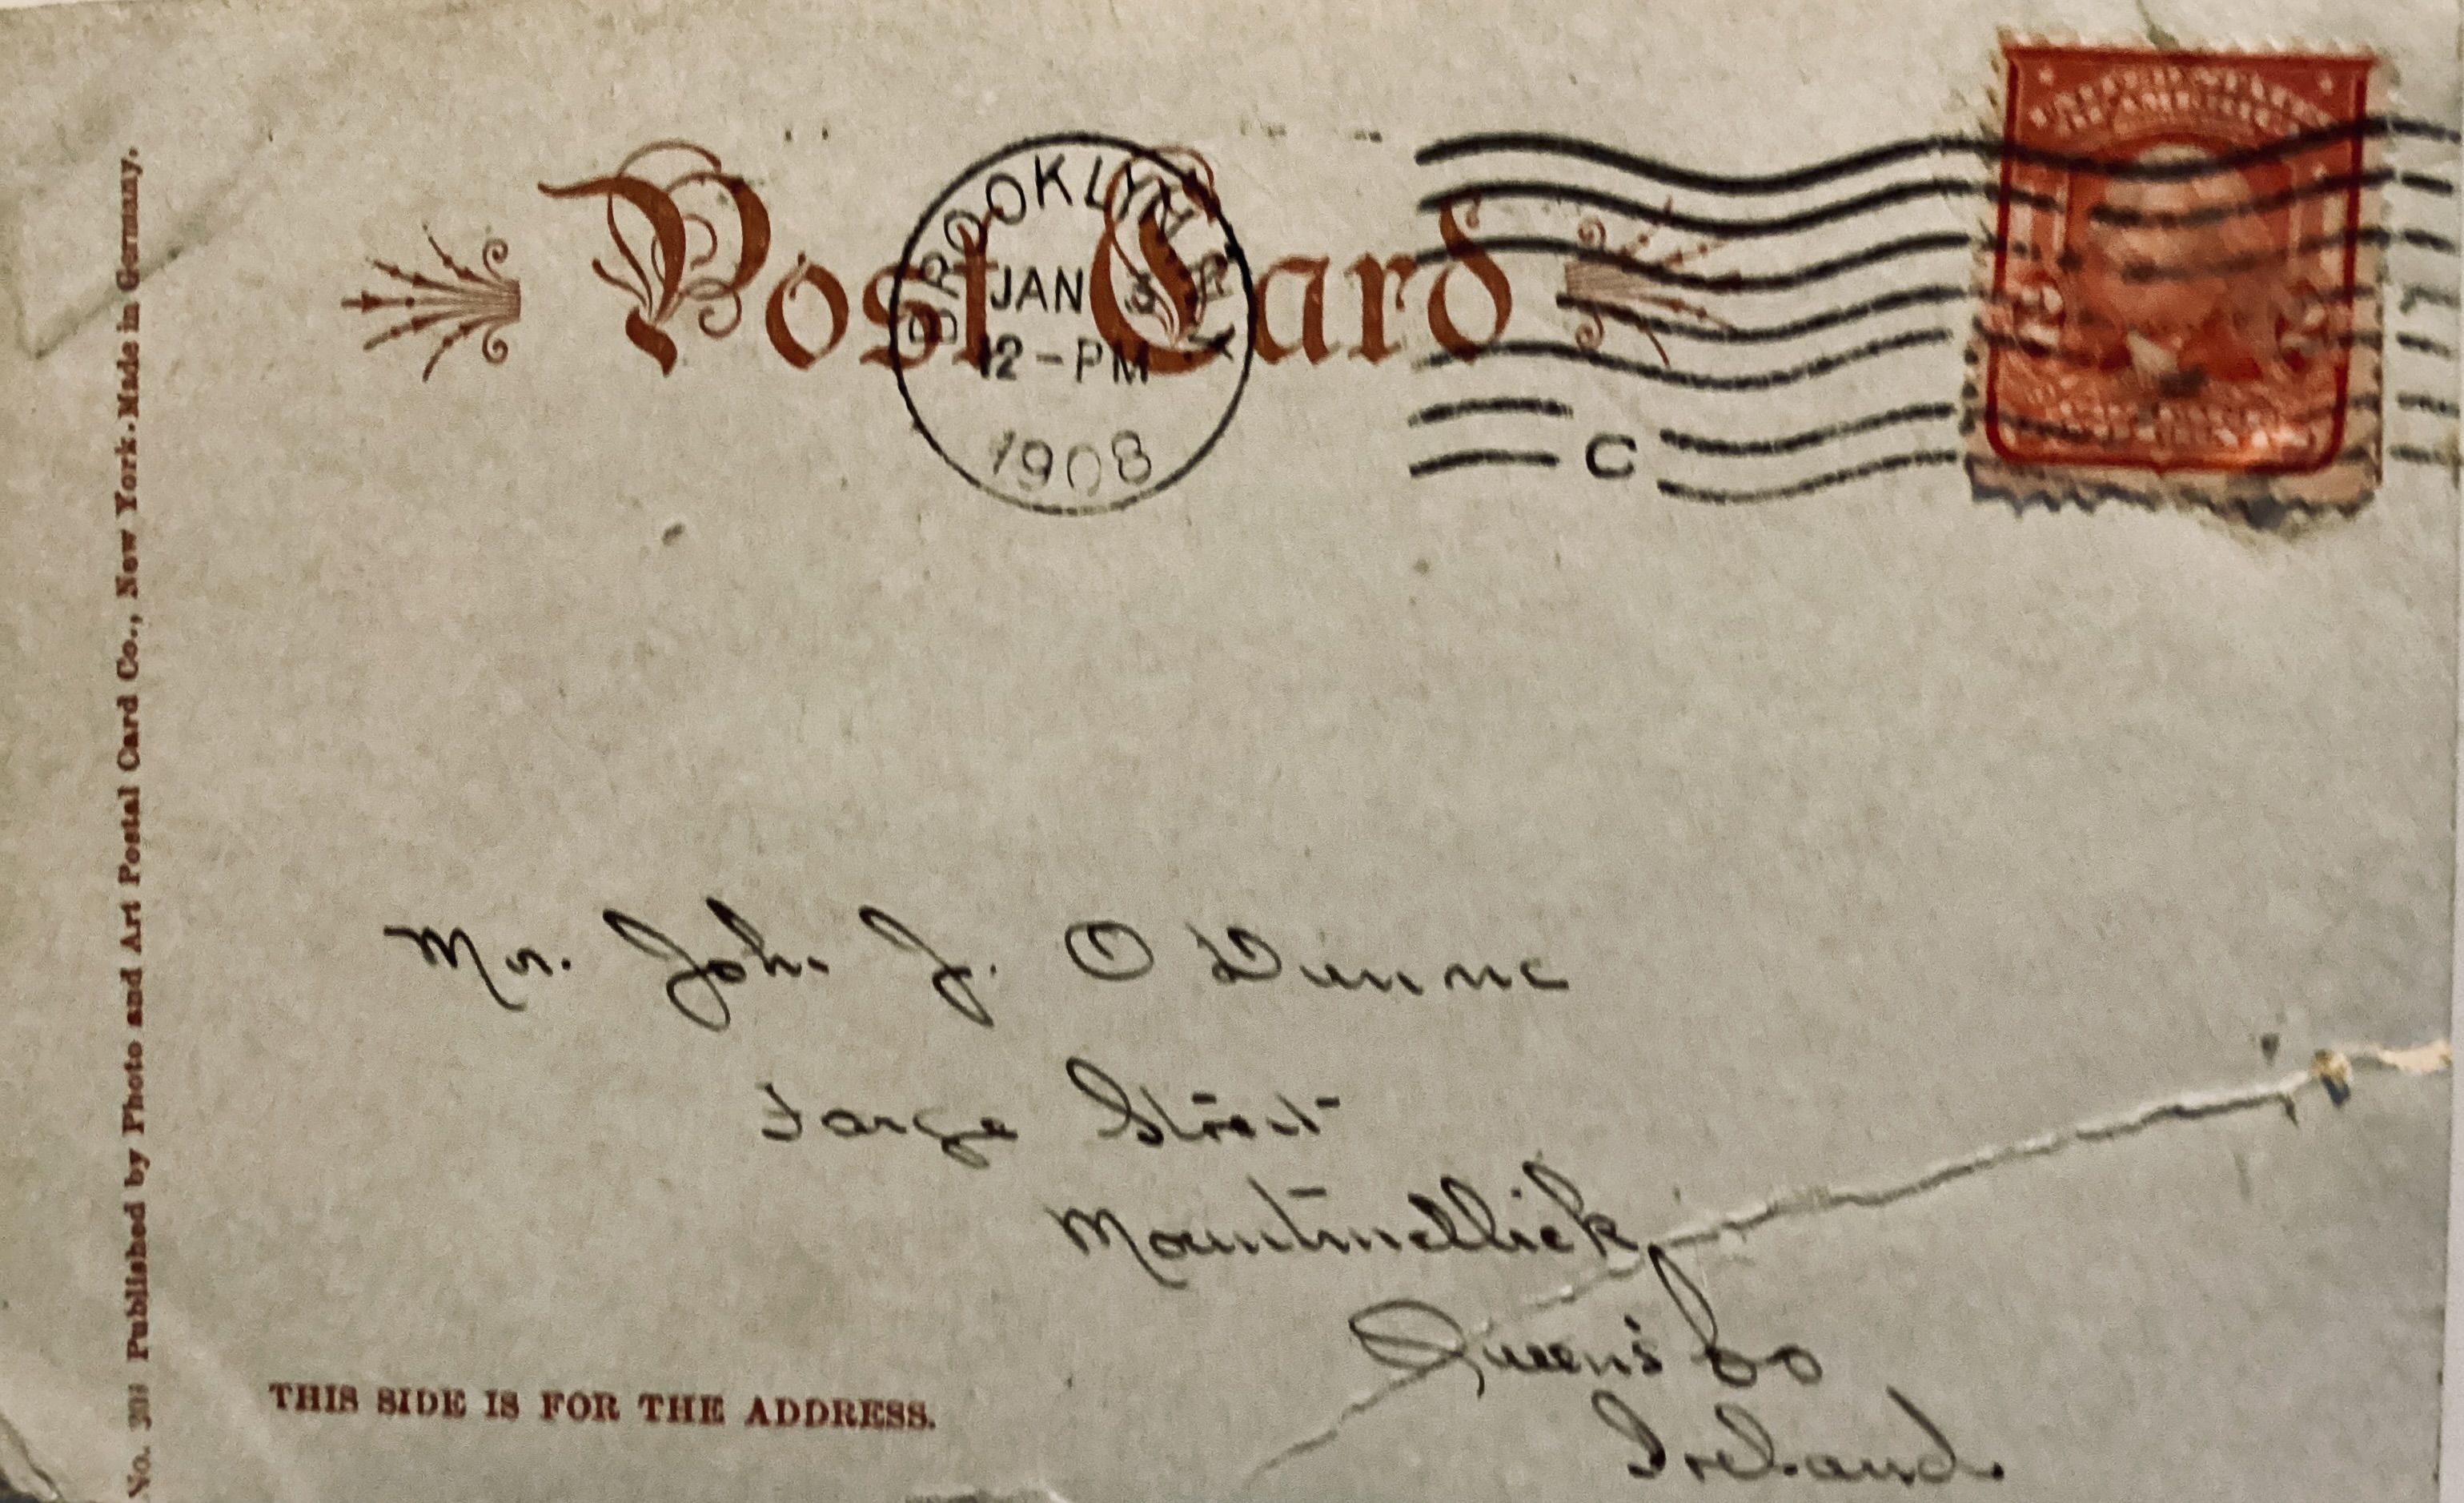 Post Card
BROOKLYN, N.Y.
JAN 3
12-PM
1908
C
UNITED STATES
OF AMERICA
2 2
Mr. John. J. O Dunne
Forge Street
Mountmellick,
Queen's Co
Ireland.
THIS SIDE IS FOR THE ADDRESS.
Published by Photo and Art Postal Card Co., New York. Made in Germany.